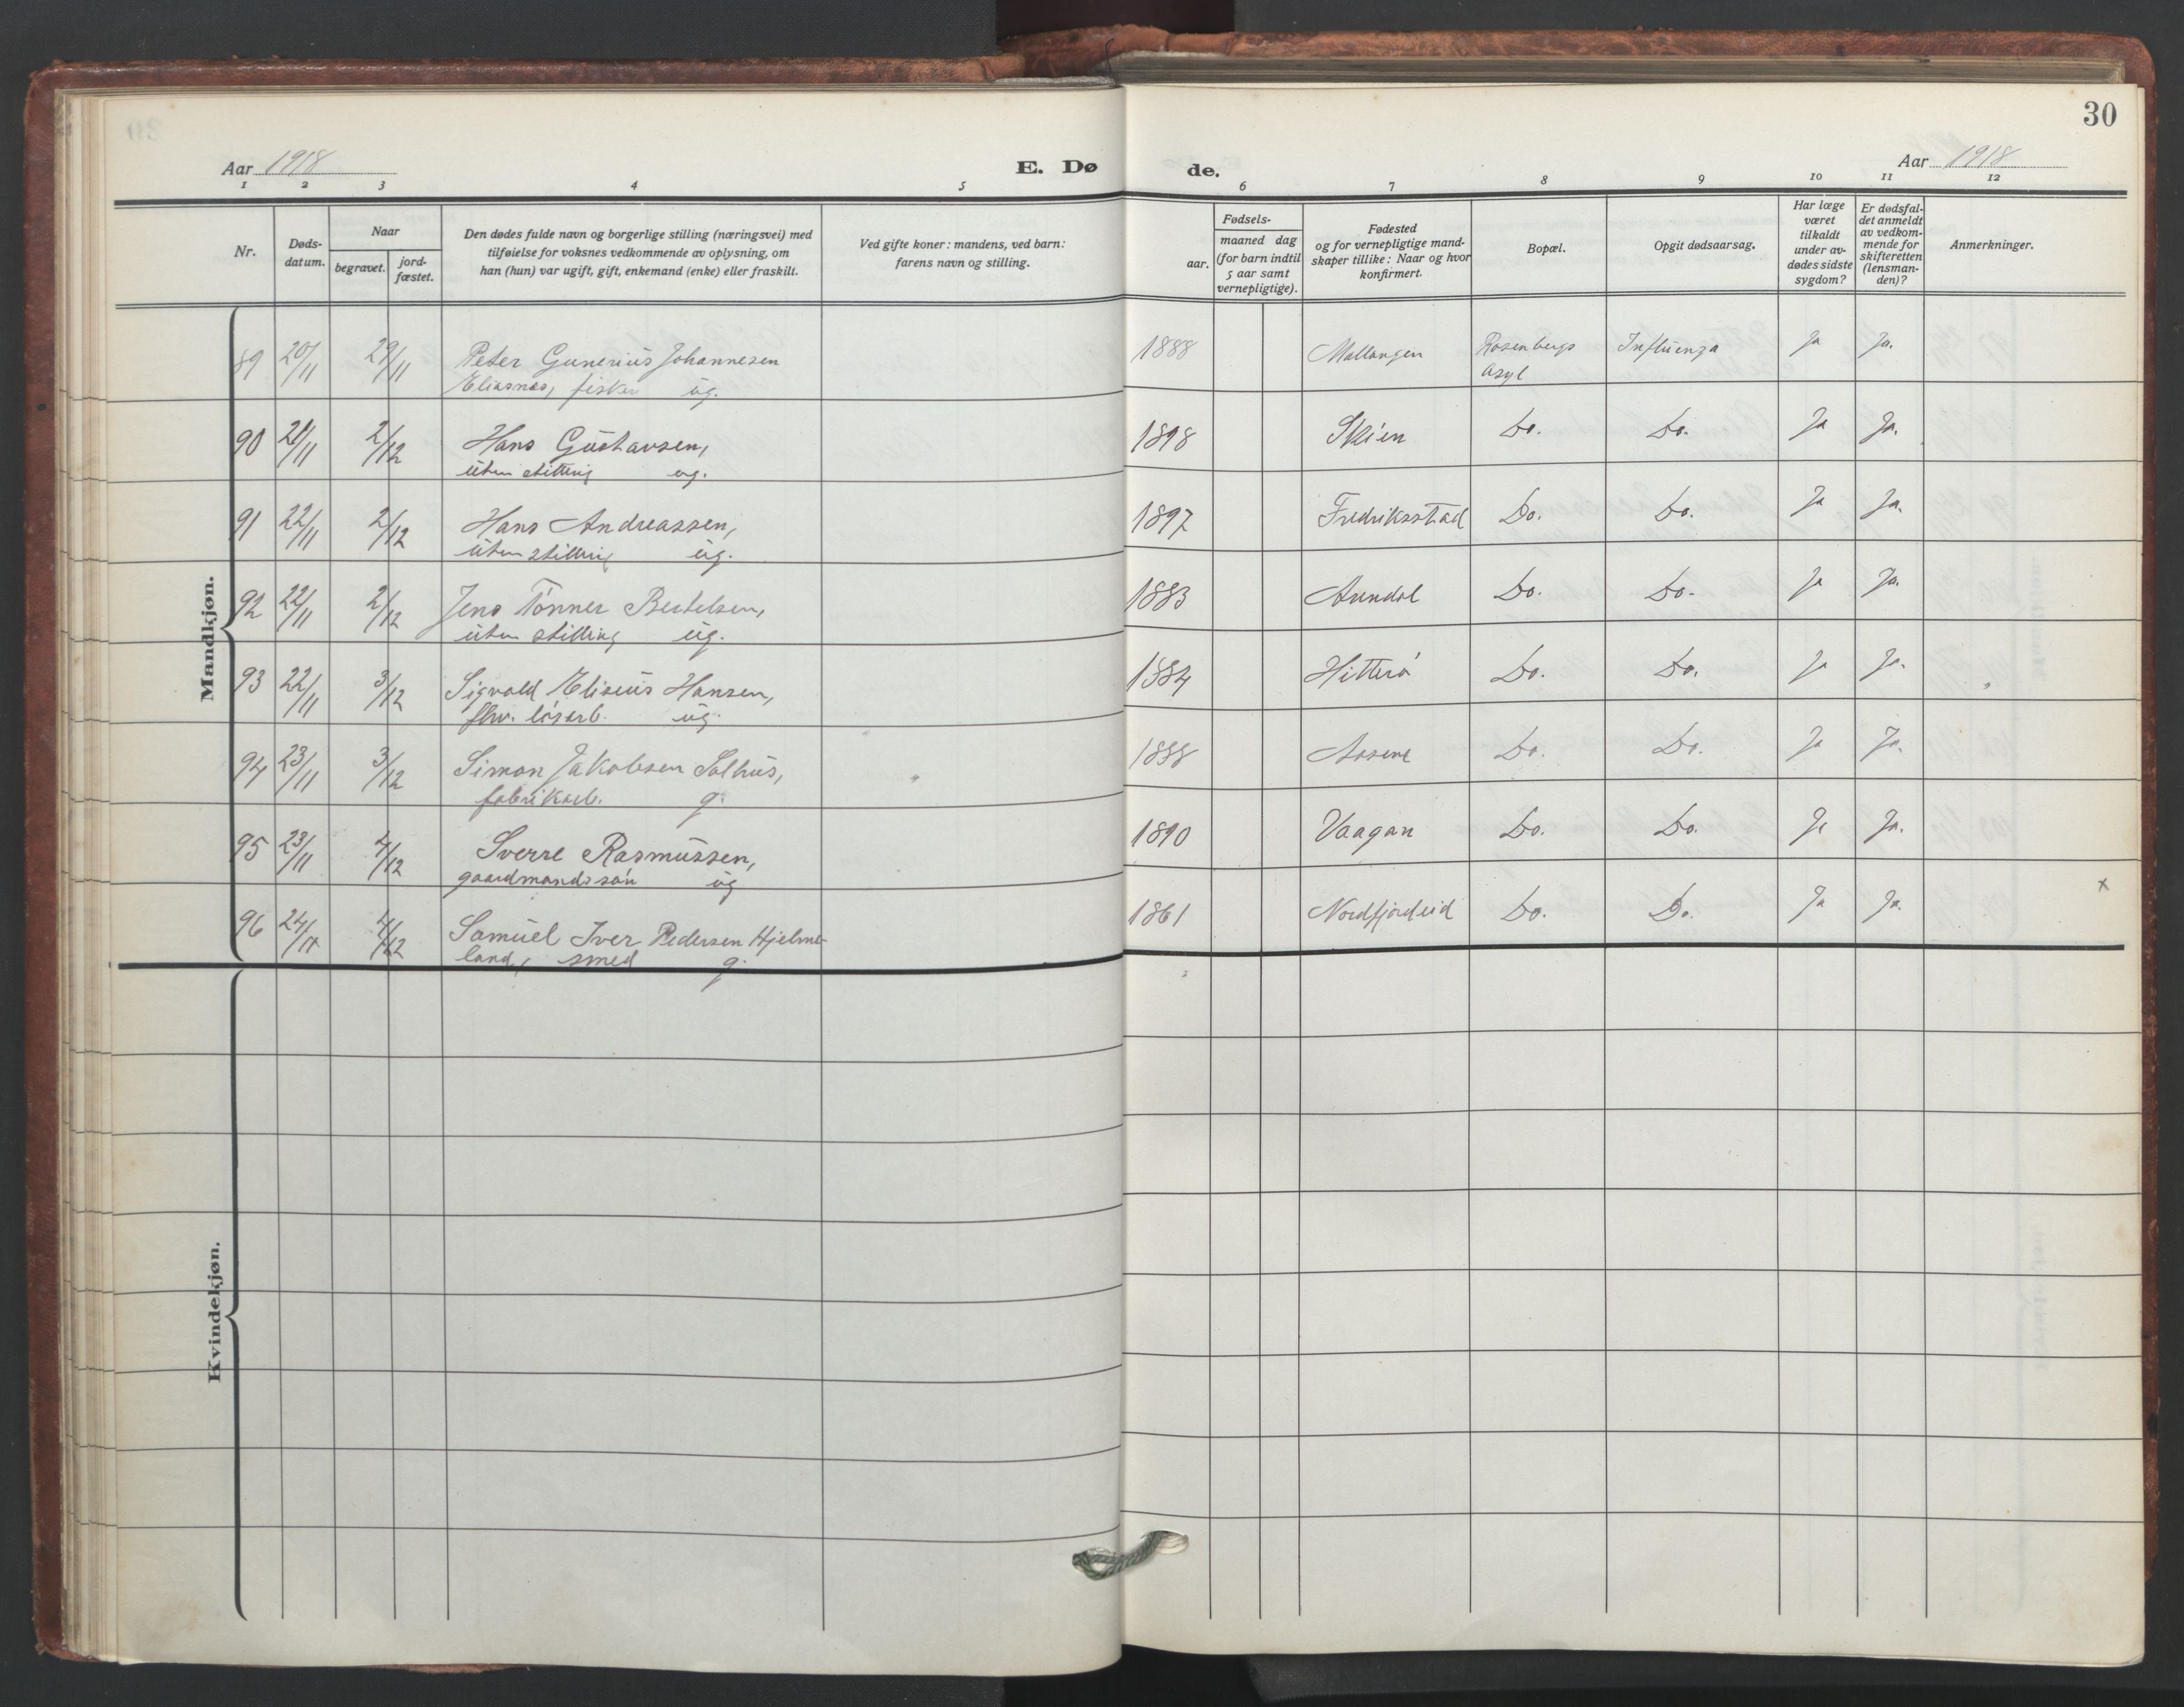 30
Aar 1918
E. Dø de.
Aar 1918
1 2 3 4 5 6 7 8 9 10 11 12
Nr.
Døds-
datum.
Naar
begravet.
jord-
fæstet.
Den dødes fulde navn og borgerlige stilling (næringsvei) med
tilføielse for voksnes vedkommende av oplysning, om
han (hun) var ugift, gift, enkemand (enke) eller fraskilt.
Ved gifte koner: mandens, ved barn:
farens navn og stilling.
Fødsels-
aar.
maaned dag
(for barn indtil
5 aar samt
vernepligtige).
Fødested
og for vernepligtige mand-
skaper tillike: Naar og hvor
konfirmert.
Bopæl.
Opgit dødsaarsag.
Har læge
været
tilkaldt
under av-
dødes sidste
sygdom?
Er dødsfal-
det anmeldt
av vedkom-
mende for
skifteretten
(lensman-
den)?
Anmerkninger.
Mandkjøn.
89 20/11 29/11 Peter Gunerius Johannesen 1888 Mallangen Rosenbergs Influenza Ja Ja.
Eliasnes, fisker ug. Asyl
90 21/11 2/12 Hans Gustavsen, 1898 Skien Do. Do. Ja Ja.
uten stilling ug.
91 22/11 2/12 Hans Andreassen, 1897 Fredriksstad Do. Do. Ja Ja.
uten stilling ug.
92 22/11 2/12 Jens Tønner Bertelsen, 1883 Arendal Do. Do. Ja Ja.
uten stilling ug.
93 22/11 3/12 Sigvald Eliseus Hansen, 1884 Hitterø Do. Do. Ja Ja.
fhv. løsarb. ug.
94 23/11 3/12 Simon Jakobsen Solhus, 1888 Aasene Do. Do. Ja Ja.
fabrikarb. g.
95 23/11 4/12 Sverre Rasmussen, 1890 Vaagan Do. Do. Ja Ja.
gaardmandssøn ug
96 24/11 4/12 Samuel Iver Pedersen Hjelme- 1861 Nordfjordeid Do. Do. Ja Ja. x
land, smed g.
Kvindekjøn.